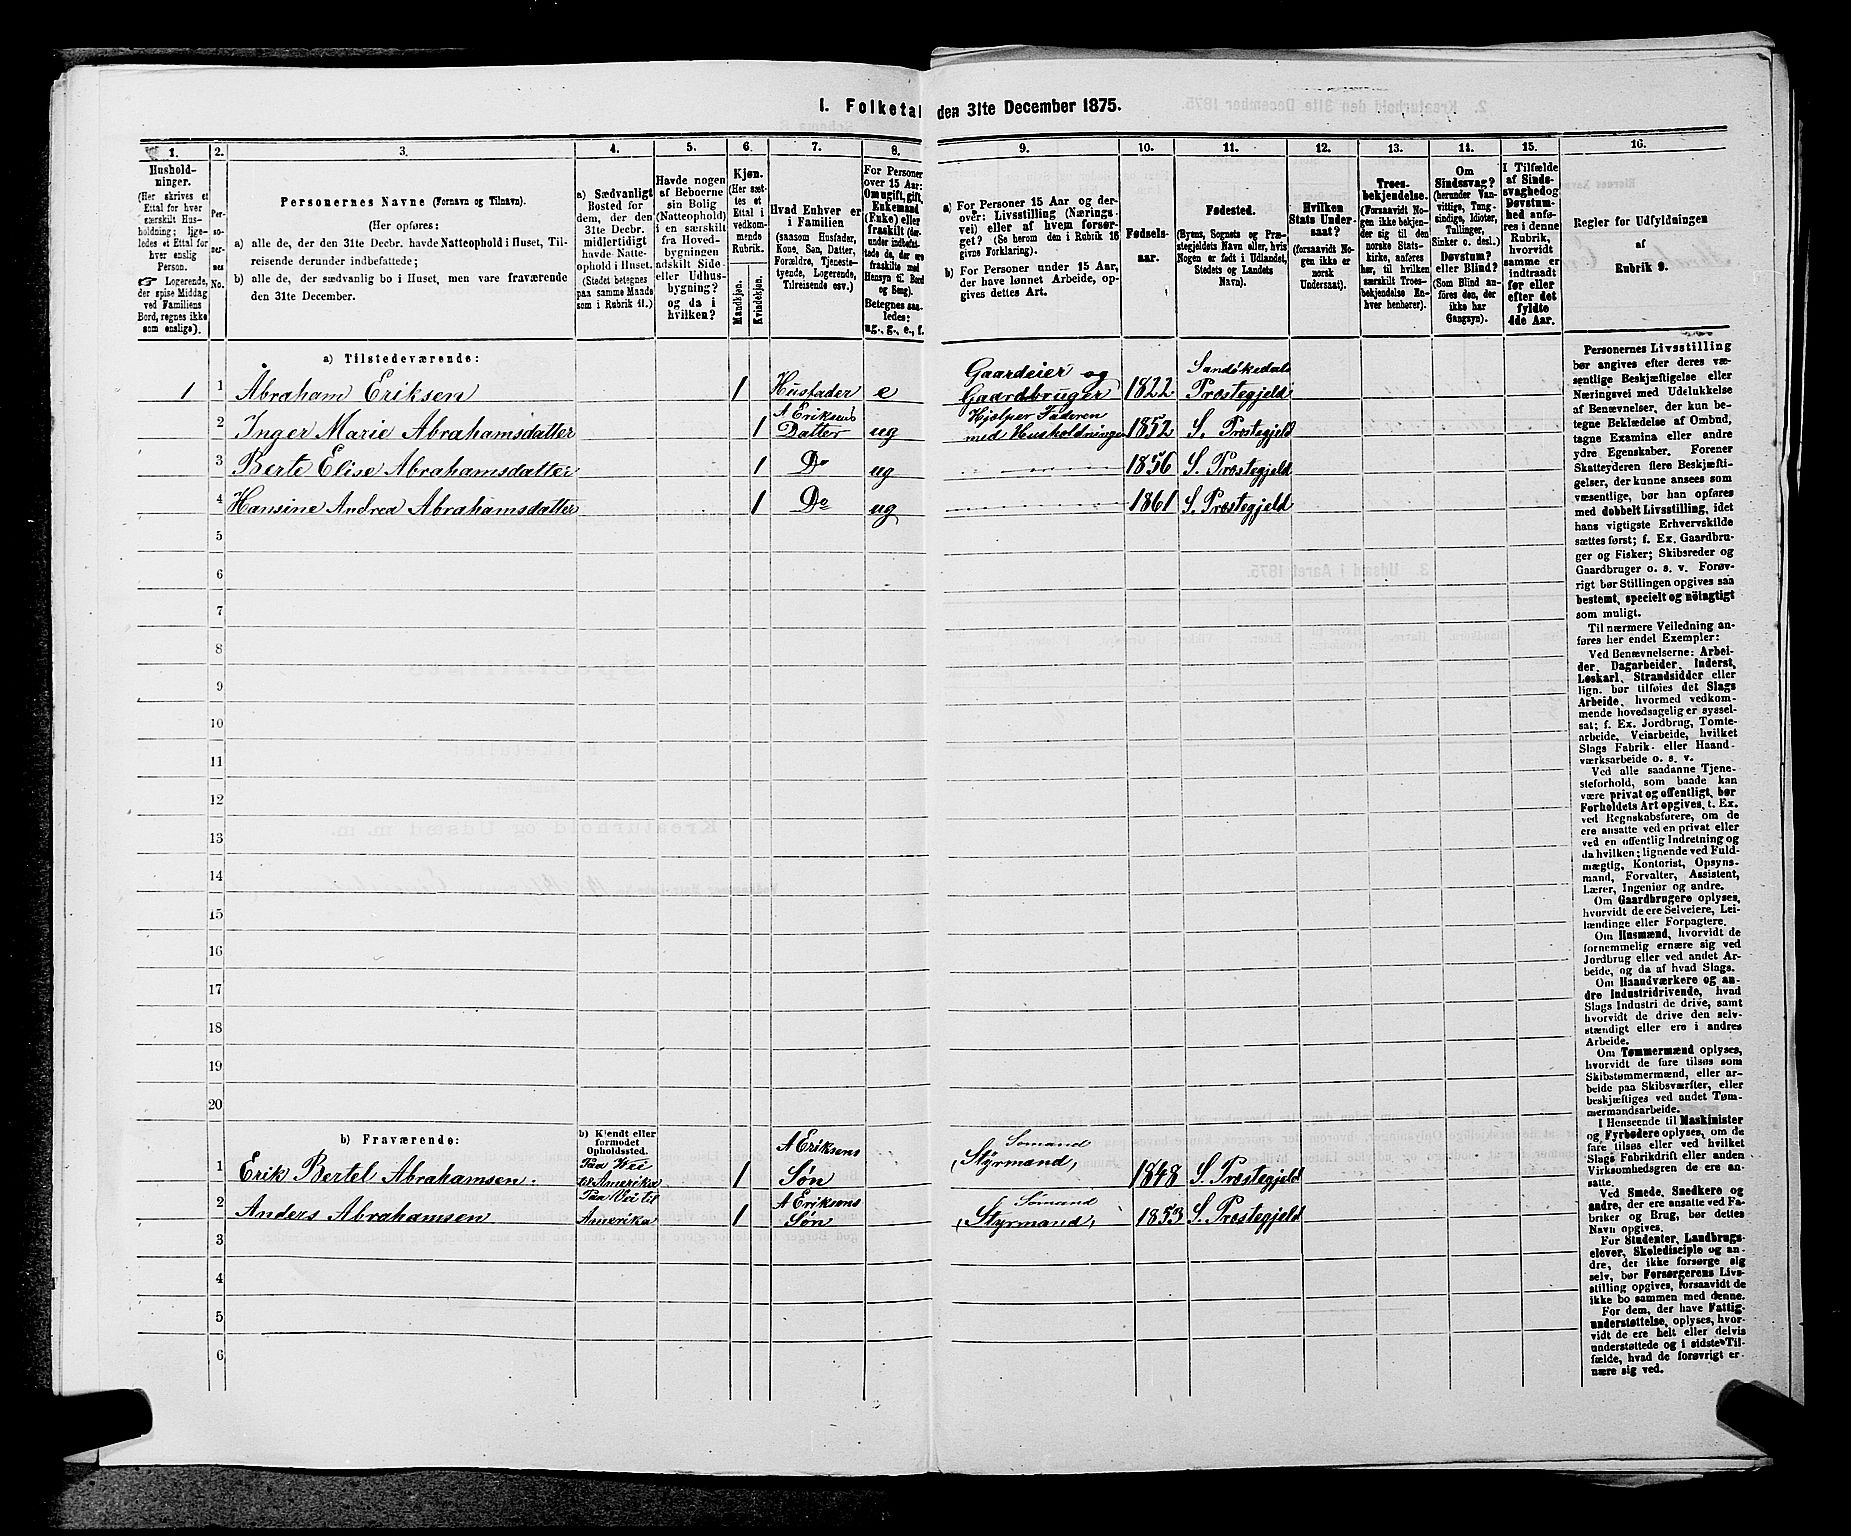 1. Folketal den 31te December 1875.
1. 2. 3. 4. 5. 6. 7. 8. 9. 10. 11. 12. 13. 14. 15. 16.
Husholdninger.
(Her skrives et
Ettal for hver
særskilt Husholdning;
ligeledes et Ettal for
hver enslig
Person.
☞ Logerende,
der spise Middag
ved Familiens
Bord, regnes ikke
som enslige).
Personernes No.
Personernes Navne (Fornavn og Tilnavn).
(Her opføres:
a) alle de, der den 31te Decbr. havde Natteophold i Huset, Tilreisende derunder indbefattede;
b) alle de, der sædvanlig bo i Huset, men vare fraværende
den 31te December.
a) Sædvanligt
Bosted for
dem, der den
31te Decbr.
midlertidigt
havde Natteophold
i Huset.
(Stedet betegnes
paa samme Maade
som i Rubrik 11.)
Havde nogen
af Beboerne
sin Bolig
(Natteophold)
i en særskilt
fra Hovedbygningen
adskilt Side-
eller Udhusbygning?
og da i
hvilken?
Kjøn.
(Her sættes
et
Ettal i
vedkommende
Rubrik.
Mandkjøn.
Kvindekjøn.
Hvad Enhver er
i Familien
(saasom Husfader,
Kone, Søn, Datter,
Forældre, Tjenestetyende,
Logerende,
Tilreisende osv.)
For Personer
over 15 Aar:
Om ugift, gift,
Enkemand
(Enke) eller
fraskilt
Betegnes saaledes:
ug., g., e., f.
a) For Personer 15 Aar og derover:
Livsstilling (Næringsvei)
eller af hvem forsørget?
(Se herom den i Rubrik 16
givne Forklaring).
b) For Personer under 15 Aar,
der have lønnet Arbeide, opgives
dettes Art.
Fødselsaar.
Fødested.
(Byens, Sognets og Præstegjeldets
Navn eller, hvis
Nogen er født i Udlandet,
Stedets og Landets
Navn).
Hvilken
Stats Undersaat?
(forsaavidt Nogen
ikke er
norsk
Undersaat).
Troesbekjendelse.
(Forsaavidt Nogen
ikke bekjender
sig til den
norske Statskirke,
anføres
her, til hvilken
særskilt Troesbekjendelse
Enhver
henhører).
Om
Sindssvag?
(herunder Vanvittige,
Tungsindige,
Idioter,
Tullinger,
Sinker o. desl.)
Døvstum?
eller Blind?
(Som Blind anføres
den, der
ikke har
Gangsyn).
I Tilfælde
af Sindssvaghed
og
Døvstumhed
anføres
i denne
Rubrik,
hvorvidt
samme er
indtraadt
før eller
efter det
fyldte
4de Aar.
Regler for Udfyldningen
af
Rubrik 9.
a) Tilstedeværende:
1 1 Åbraham Eriksen 1 Husfader e Gaardeier og Gaardbruger 1822 Sandökedals Præstegjeld
2 Inger Marie Abrahamsdatter 1 A Eriksens Datter ug Hjælper Faderen med Husholdningen 1852 S. Præstegjeld
3 Berte Elise Abrahamsdatter 1 Do ug 1856 S. Præstegjeld
4 Hansine Andrea Abrahamsdatter 1 Do ug 1861 S. Præstegjeld
5
6
7
8
9
10
11
12
13
14
15
16
17
18
19
20
b) Fraværende: b) Kjendt eller
formodet
Opholdssted.
1 Erik Bertel Abrahamsen. Paa Vei til Amerika 1 A Eriksens Søn Sømand (Styrmand) 1848 S. Præstegjeld
2 Anders Abrahamsen Paa Vei til Amerika 1 A Eriksens Søn Sømand (Styrmand) 1853 S. Præstegjeld
3
4
5
6
Personernes Livsstilling
bør angives efter deres væsentlige
Beskjæftigelse eller
Næringsvei med Udelukkelse
af Benævnelser, der kun betegne
Beklædelse af Ombud,
tagne Examina eller andre
ydre Egenskaber. Forener
Skatteyderen flere Beskjæftigelser,
der kunne ansees som
væsentlige, bør han opføres
med dobbelt Livsstilling, idet
hans vigtigste Erhvervskilde
sættes først; f. Ex. Gaardbruger
og Fisker; Skibsreder og
Gaardbruger o. s. v. Forøvrigt
bør Stillingen opgives saa
bestemt, specielt og nøiagtigt
som muligt.
Til nærmere Veiledning anføres
her endel Exempler:
Ved Benævnelserne: Arbeider,
Dagarbeider, Inderst,
Løskarl, Strandsidder eller
lign. bør tilføies det Slags
Arbeide, hvormed vedkommende
hovedsagelig er sysselsat;
f. Ex. Jordbrug, Tomtearbeide,
Veiarbeide, hvilket
Slags Fabrik- eller Haandværksarbeide
o. s. v.
Ved alle saadanne Tjenesteforhold,
som baade kan
være privat og offentligt, bør
Forholdets Art opgives, t. Ex.
ved Regnskabsførere, om de
ere ansatte ved en privat eller
ved en offentlig Indretning og
da hvilken; lignende ved Fuldmægtig,
Kontorist, Opsynsmand,
Forvalter, Assistent,
Lærer, Ingeniør og andre.
Om Gaardbrugere oplyses,
hvorvidt de ere Selveiere, Leilændinge
eller Forpagtere.
Om Husmænd, hvorvidt de
fornemmelig ernære sig ved
Jordbrug eller ved andet Arbeide,
og da af hvad Slags.
Om Haandværkere og andre
Industridrivende, hvad
Slags Industri de drive, samt
hvorvidt de drive den selvstændigt
eller ere i andres
Arbeide.
Om Tømmermænd oplyses,
hvorvidt de fare tilsøs som
Skibstømmermænd, eller arbeide
paa Skibsværfter, eller
beskjæftiges ved andet Tømmermandsarbeide.
I Henseende til Maskinister
og Fyrbødere oplyses, om de
fare tilsøs eller ved hvilket
Slags Fabrikdrift eller anden
Virksomhedsgren de ere ansatte.
Ved Smede, Snedkere og
andre, der ere ansatte ved Fabriker
og Brug, bør dettes
Navn opgives.
For Studenter, Landbrugselever,
Skoledisciple og andre,
der ikke forsørge sig
selv, bør Forsørgerens Livsstilling
opgives, forsaavidt de
ikke bo sammen med denne.
For dem, der have Fattigunderstøttelse,
oplyses, hvorvidt
de ere helt eller delvis
understøttede og i sidste Tilfælde,
hvad de forøvrigt ernære
sig ved.